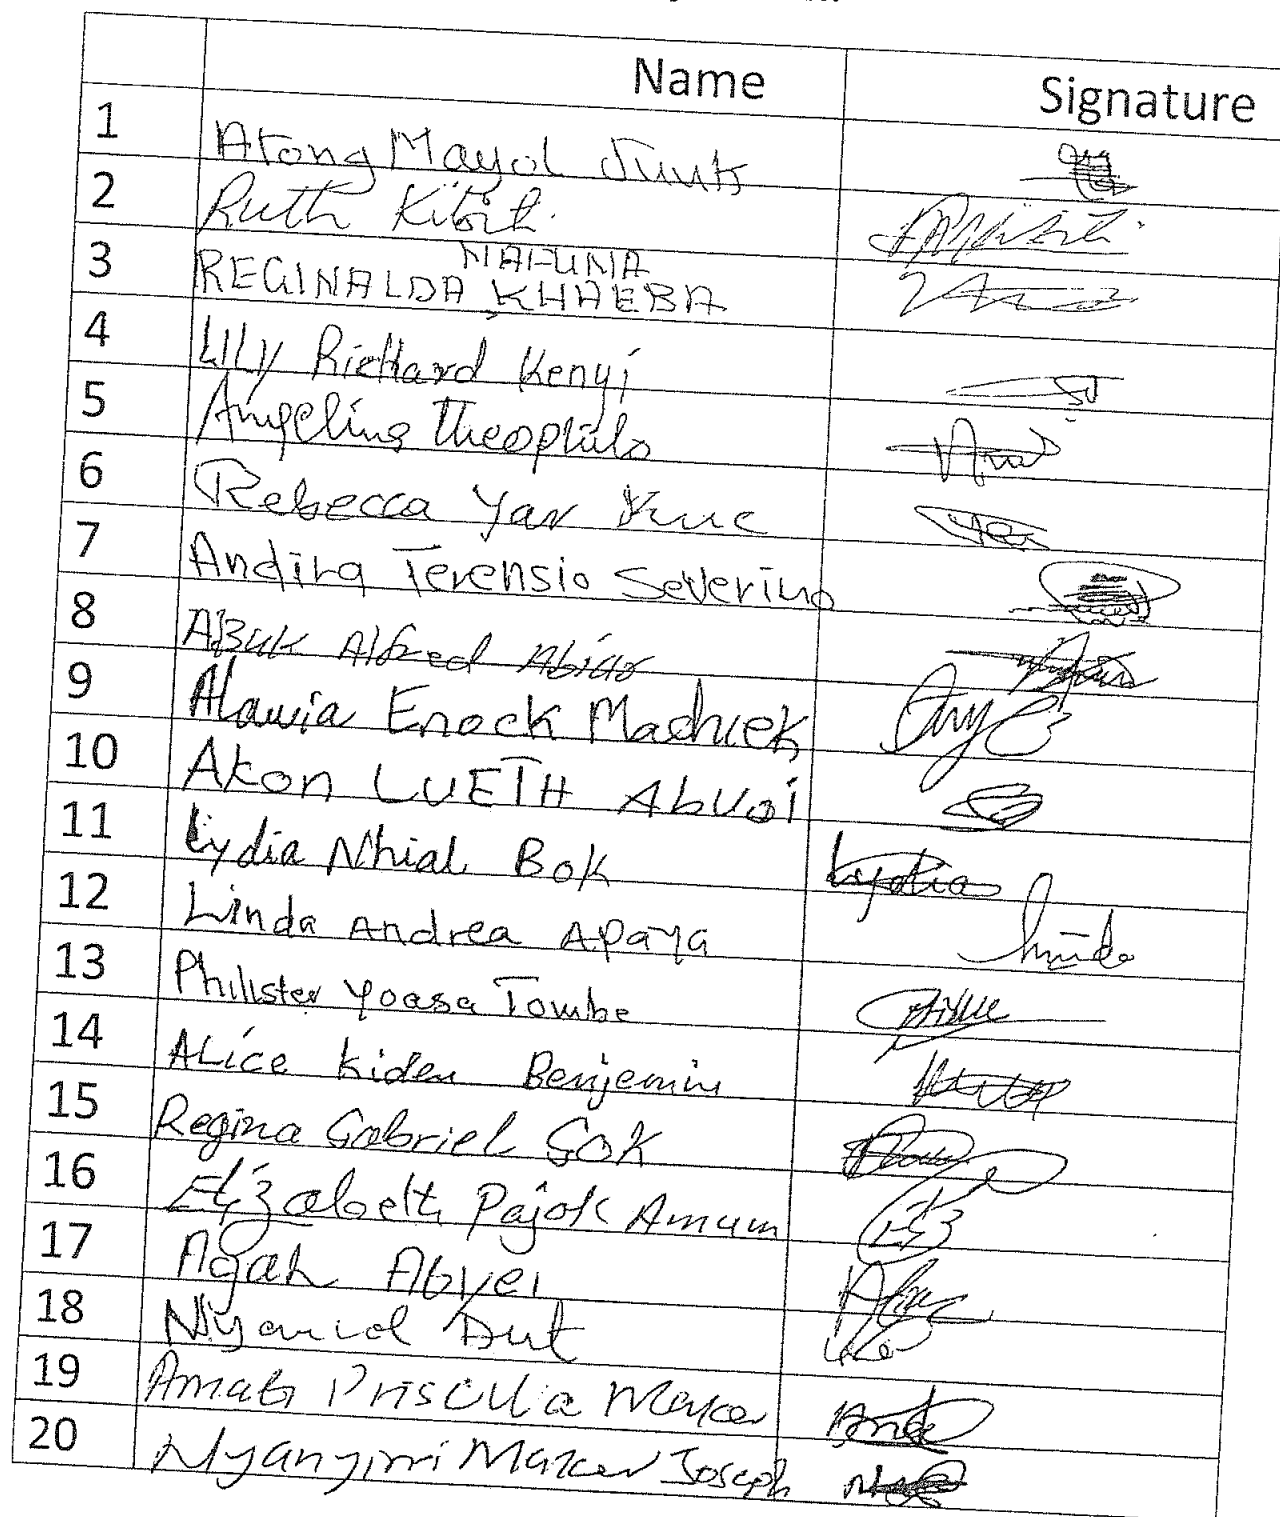 Name Signature
1 Atong Mayol
2 Ruth Kibiti
3 REGINALDA NAFUNA KHAEBA
4 LILY Richard Kenyi
5 Angelina Theophilo
6 Rebecca Yar Kuc
7 Andira Terensio Severino
8 ABUK Alfred
9 Alawia Enock Machiek
10 Akon LUETH Abuoi
11 Lydia Nhial Bok Lydia
12 Linda Andrea Apaya Linda
13 Philister Yoasa Tombe
14 ALice Kiden Benjemin
15 Regina Gabriel GOK
16 Elizabeth Pajok Amum
17 Agah Abyei
18 Dut
19 Priscilla
20 Joseph